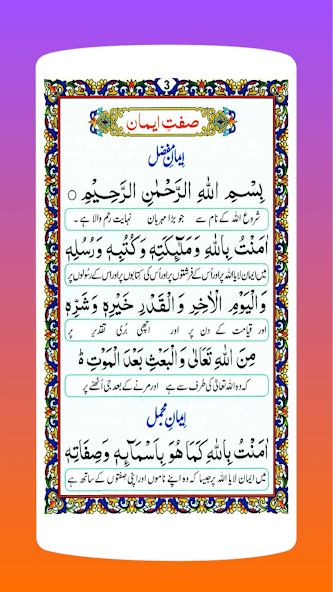 3
صفتِ ایمان
ایمانِ مفصّل
بِسْمِ اللهِ الرَّحْمٰنِ الرَّحِيْمِ ○
شروع اللہ کے نام سے جو بڑا مہربان نہایت رحم والا ہے۔
اٰمَنْتُ بِاللهِ وَمَلٰٓئِكَتِهٖ وَكُتُبِهٖ وَرُسُلِهٖ
میں ایمان لایا اللہ پر اور اُس کے فرشتوں پر اور اُس کی کتابوں پر اور اس کے رسولوں پر
وَالْيَوْمِ الْاٰخِرِ وَالْقَدْرِ خَيْرِهٖ وَشَرِّهٖ
اور قیامت کے دن پر اور اچھی بُری تقدیر پر
مِنَ اللهِ تَعَالٰى وَالْبَعْثِ بَعْدَ الْمَوْتِ ؕ
کہ وہ اللہ تعالیٰ کی طرف سے ہے اور مرنے کے بعد جی اُٹھنے پر
ایمانِ مجمل
اٰمَنْتُ بِاللهِ كَمَا هُوَ بِاَسْمَآئِهٖ وَصِفَاتِهٖ
میں ایمان لایا اللہ پر جیسا کہ وہ اپنے ناموں اور اپنی صفتوں کے ساتھ ہے